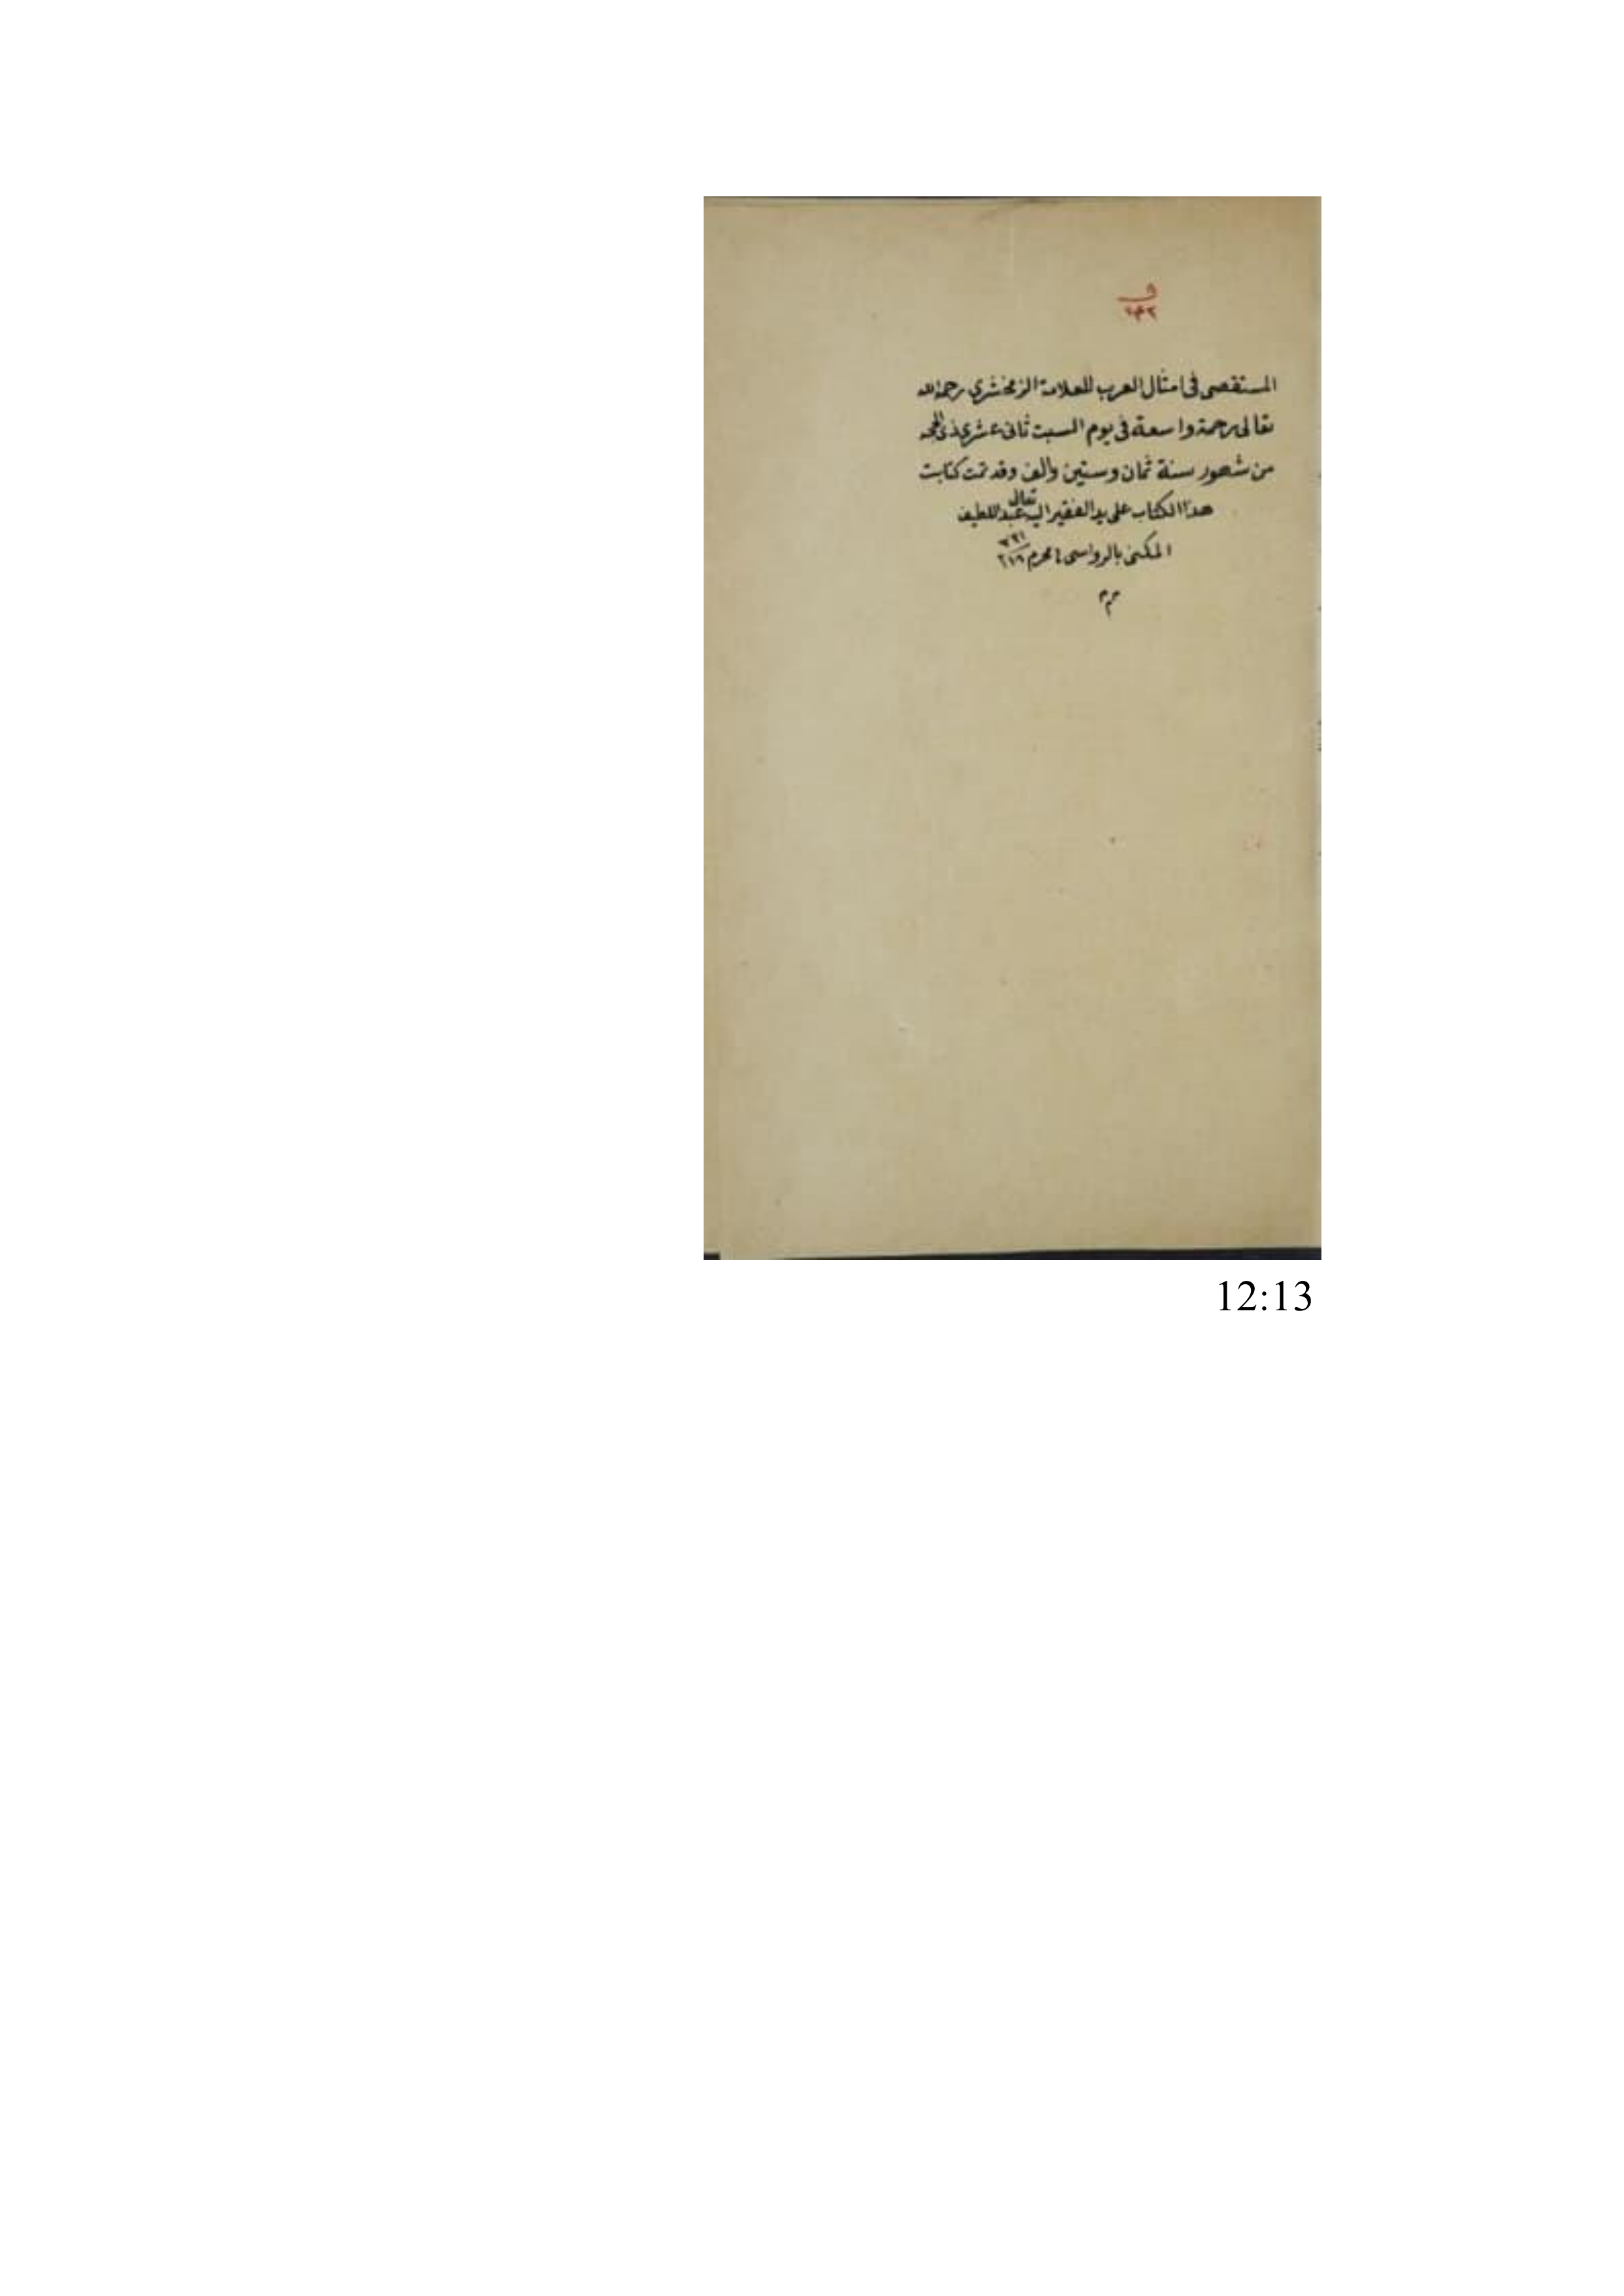 ق
٢٣٢
المستقصى فى امثال العرب للعلامة الزمخشري رحمه الله
تعالى رحمة واسعة فى يوم السبت ثانى عشري ذى الحجه
من شهور سنة ثمان وستين والف وقد تمت كتابت
هذا الكتاب على يد الفقير اليه تعالى عبد اللطيف
المكنى بالرواسى محرم
12:13